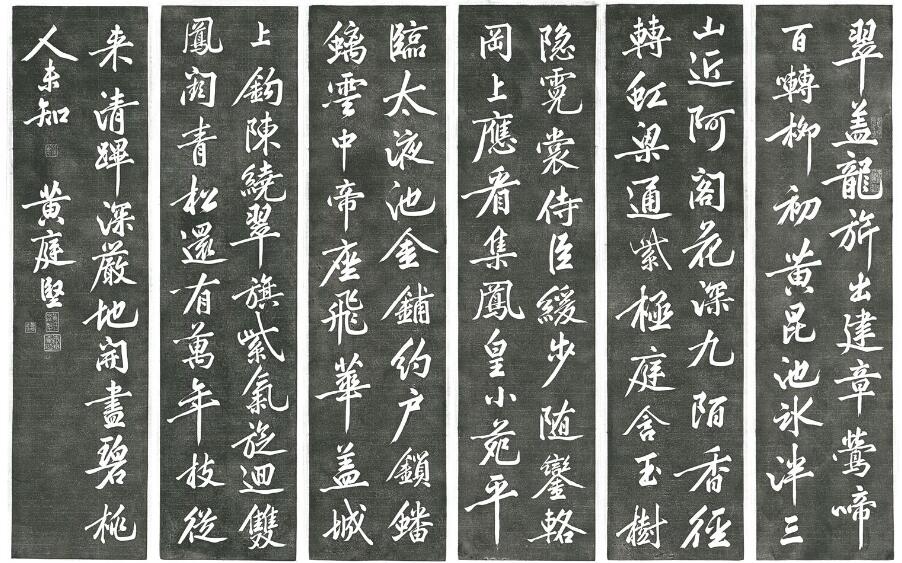 翠蓋龍旂出建章鶯啼
百囀柳初黄昆池氷泮三
山近阿閣花深九陌香徑
轉虹梁通紫極庭含玉樹
隐霓裳侍臣緩步随鑾輅
岡上應看集鳳皇小苑平
臨太液池金鋪約户鎖蟠
螭雲中帝座飛華蓋城
上鈎陳繞翠旗紫氣旋迴雙
鳳闕青松還有萬年枝從
来清蹕深嚴地開盡碧桃
人未知
黄庭堅